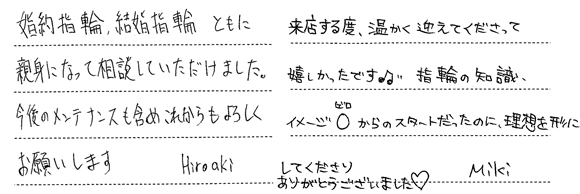 婚約指輪,結婚指輪 ともに
親身になって相談していただけました。
今後のメンテナンスも含めこれからもよろしく
お願いします Hiroaki
来店する度、温かく迎えてくださって
嬉しかったです♫!! 指輪の知識、
イメージ0(ゼロ)からのスタートだったのに、理想を形に
してくださり
ありがとうございました♡ Miki